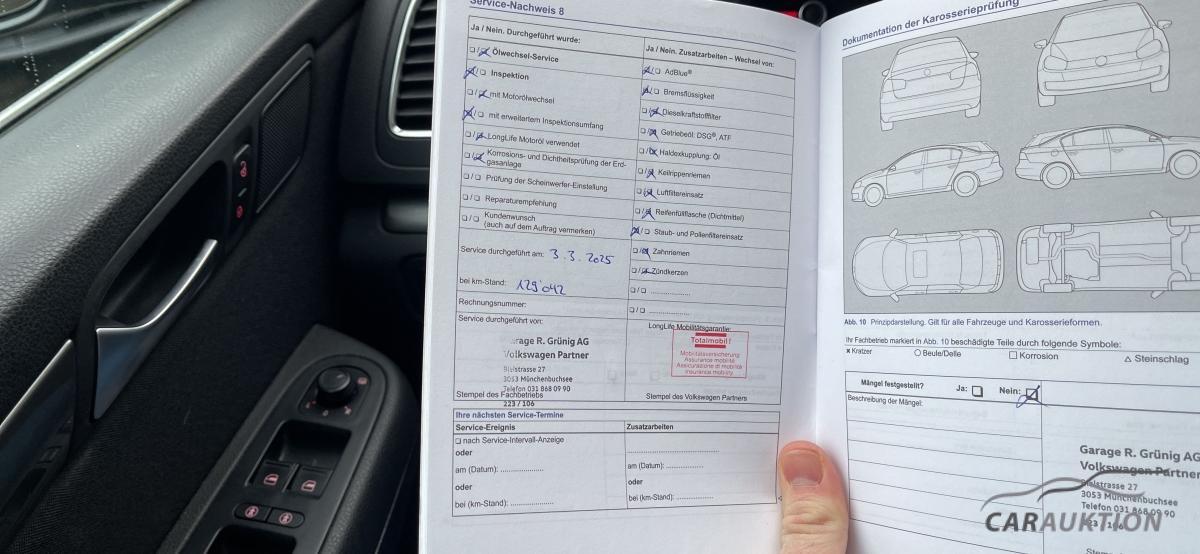 Service-Nachweis 8
Ja / Nein. Durchgeführt wurde:
Ölwechsel-Service
Inspektion
mit Motorölwechsel
mit erweitertem Inspektionsumfang
LongLife Motoröl verwendet
Korrosions- und Dichtheitsprüfung der Erd-
gasanlage
Prüfung der Scheinwerfer-Einstellung
Reparaturempfehlung
Kundenwunsch
(auch auf dem Auftrag vermerken)
Service durchgeführt am: 3.3.2025
bei km-Stand: 129'042
Rechnungsnummer:
Service durchgeführt von:
Garage R. Grünig AG
Volkswagen Partner
Bielstrasse 27
3053 Münchenbuchsee
Telefon 031 868 09 90
Stempel des Fachbetriebs
223 / 106
Ja / Nein. Zusatzarbeiten – Wechsel von:
AdBlue®
Bremsflüssigkeit
Dieselkraftstofffilter
Getriebeöl: DSG®, ATF
Haldexkupplung: Öl
Keilrippenriemen
Luftfiltereinsatz
Reifenfüllflasche (Dichtmittel)
Staub- und Pollenfiltereinsatz
Zahnriemen
Zündkerzen
LongLife Mobilitätsgarantie:
Totalmobil!
Mobilitätsversicherung
Assurance mobilité
Assicurazione di mobilità
Insurance mobility
Stempel des Volkswagen Partners
Ihre nächsten Service-Termine
Service-Ereignis
nach Service-Intervall-Anzeige
oder
am (Datum): ....................
oder
bei (km-Stand): ....................
Zusatzarbeiten
am (Datum): ....................
oder
bei (km-Stand): ....................
Dokumentation der Karosserieprüfung
Abb. 10 Prinzipdarstellung. Gilt für alle Fahrzeuge und Karosserieformen.
Ihr Fachbetrieb markiert in Abb. 10 beschädigte Teile durch folgende Symbole:
Kratzer Beule/Delle Korrosion Steinschlag
Mängel festgestellt? Ja: Nein:
Beschreibung der Mängel:
Garage R. Grünig AG
Volkswagen Partner
Bielstrasse 27
3053 Münchenbuchsee
Telefon 031 868 09 90
CARAUKTION